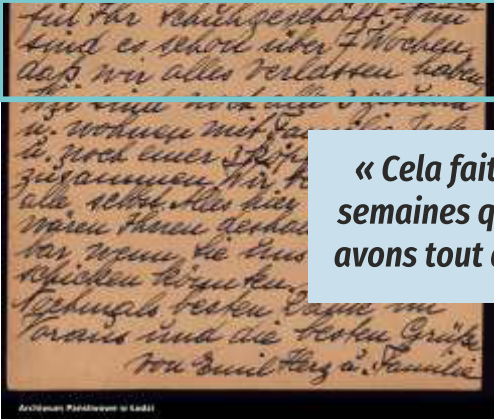 für Ihr Schuhgeschäft. Nun
sind es schon über 7 Wochen,
daß wir alles verlassen haben.
Wir sind noch alle 3 gesund
u. wohnen mit Familie
u. noch einer 3 köpf
zusammen. Wir
alle selbst. Alles hier
wären Ihnen deshal
bar wenn Sie uns
schicken könnten.
Nochmals besten Dank im
Voraus und die besten Grüße
von Emil Herz u. Familie
« Cela fait
semaines q
avons tout
Archiwum Państwowe w Łodzi